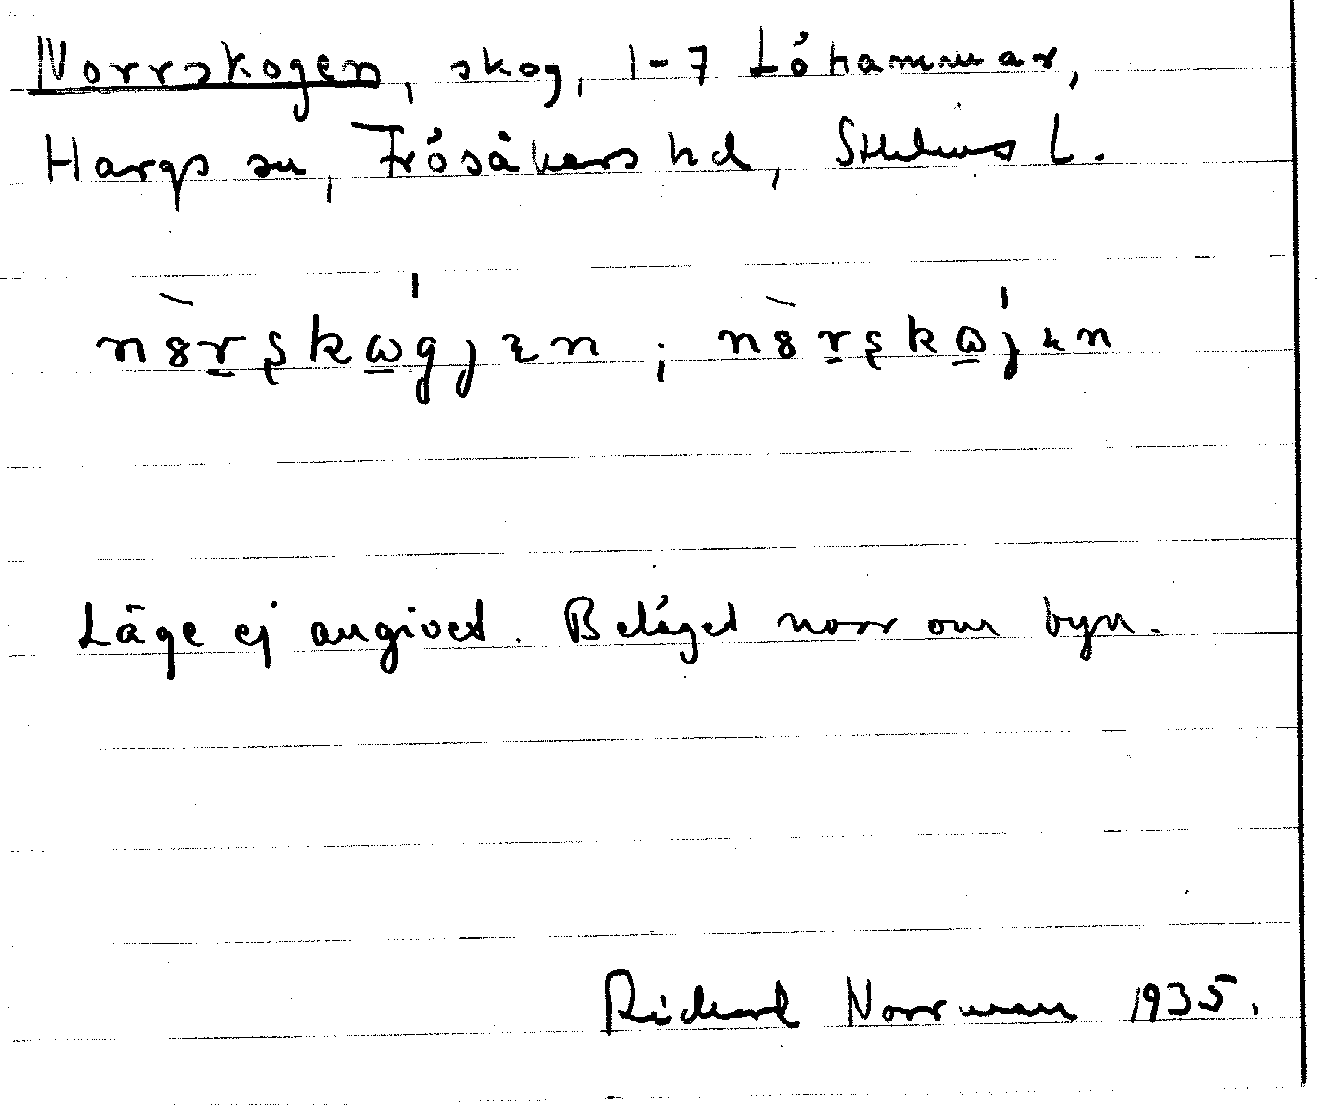 Norrskogen, skog, 1-7 Löhammar,
Hargs sn, Frösåkers hd, Sthlms L.
Läge ej angivet. Beläget norr om byn.
Rickard Norrman 1935.